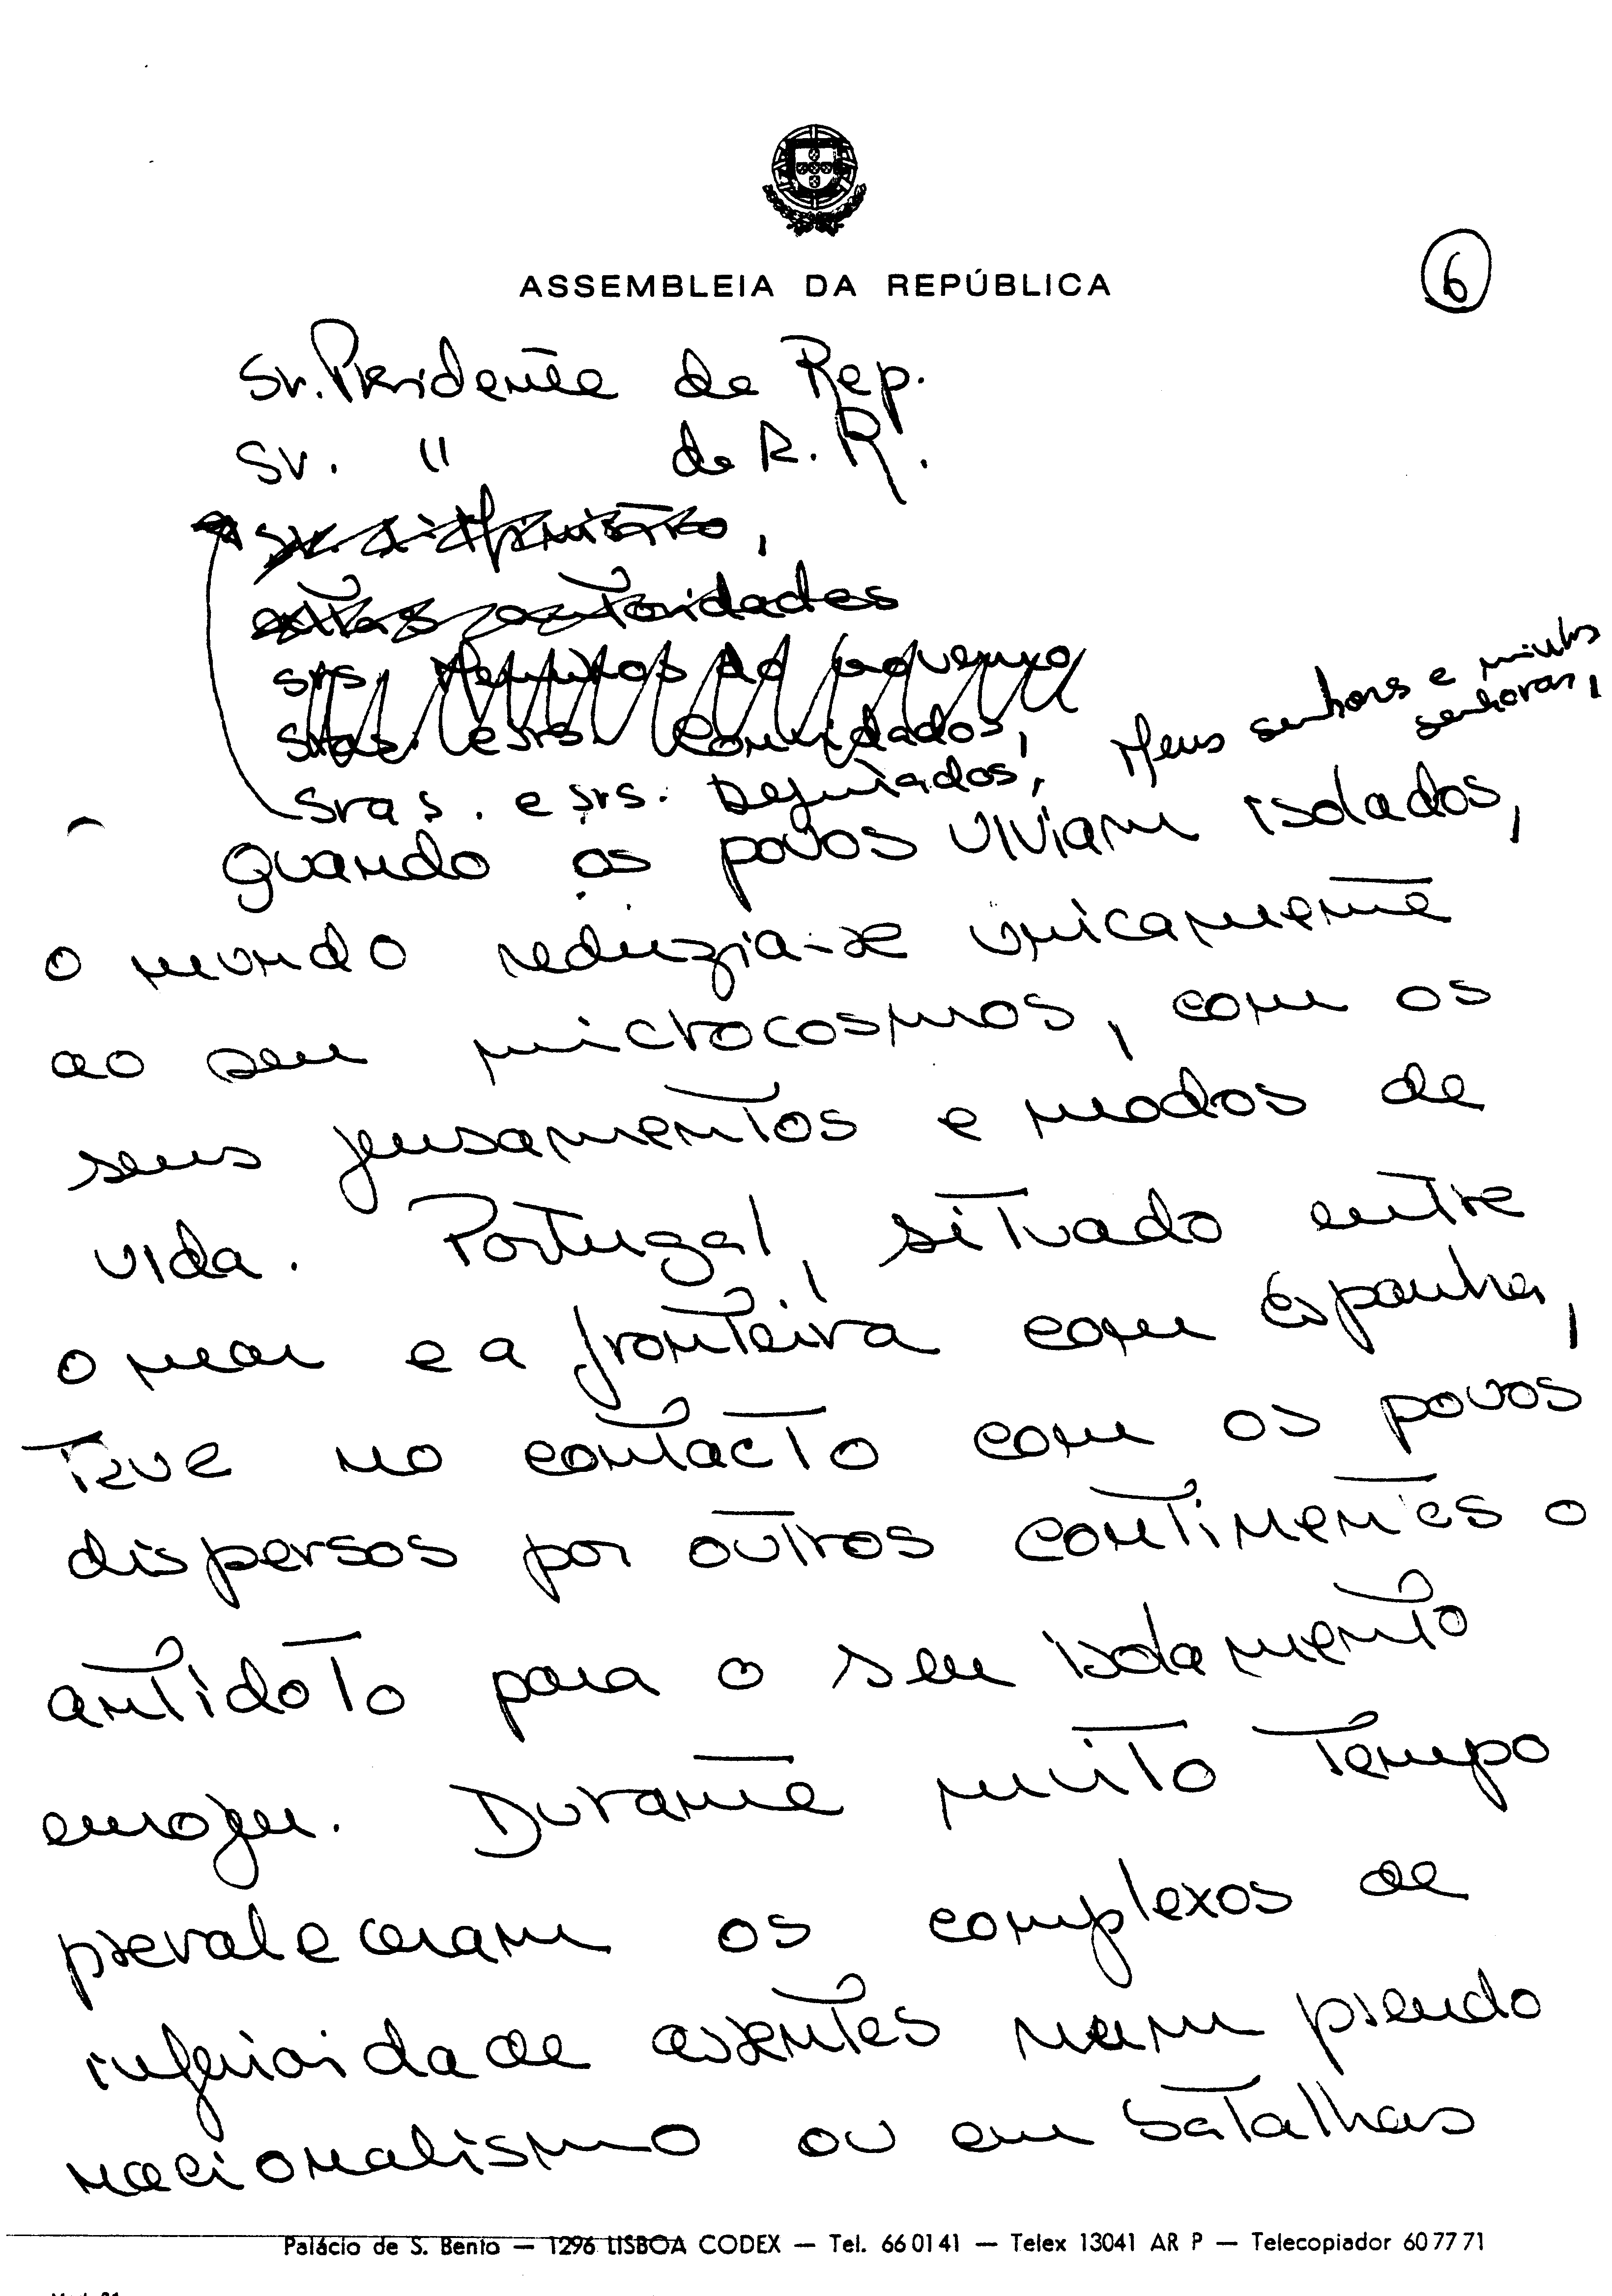 ASSEMBLEIA DA REPÚBLICA
6
Sr. Presidente da Rep.
Sr. " da R. R.
Sr. 1º Ministro,
autoridades
srs. Membros do Governo
sras. e srs. Convidados,
Sras. e srs. Deputados, Meus senhores e minhas
senhoras,
Quando os povos viviam isolados,
o mundo reduzia-se unicamente
ao seu microcosmos, com os
seus pensamentos e modos de
vida. Portugal, situado entre
o mar e a fronteira com Espanha,
teve no contacto com os povos
dispersos por outros continentes o
antídoto para o seu isolamento
europeu. Durante muito tempo
prevaleceram os complexos de
inferioridade assentes num pseudo
nacionalismo ou em batalhas
Palácio de S. Bento — 1296 LISBOA CODEX — Tel. 66 01 41 — Telex 13041 AR P — Telecopiador 60 77 71